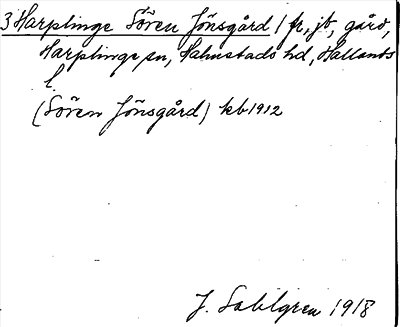 3 Harplinge Sören Jönsgård / fr, jb, gård,
Harplinge sn, Halmstads hd, Hallands
l.
(Sören Jönsgård) kb 1912
J. Sahlgren 1918